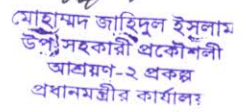 মোহাম্মদ জাহিদুল ইসলাম
উপ সহকারী প্রকৌশলী
আশ্রয়ণ-২ প্রকল্প
প্রধানমন্ত্রীর কার্যালয়